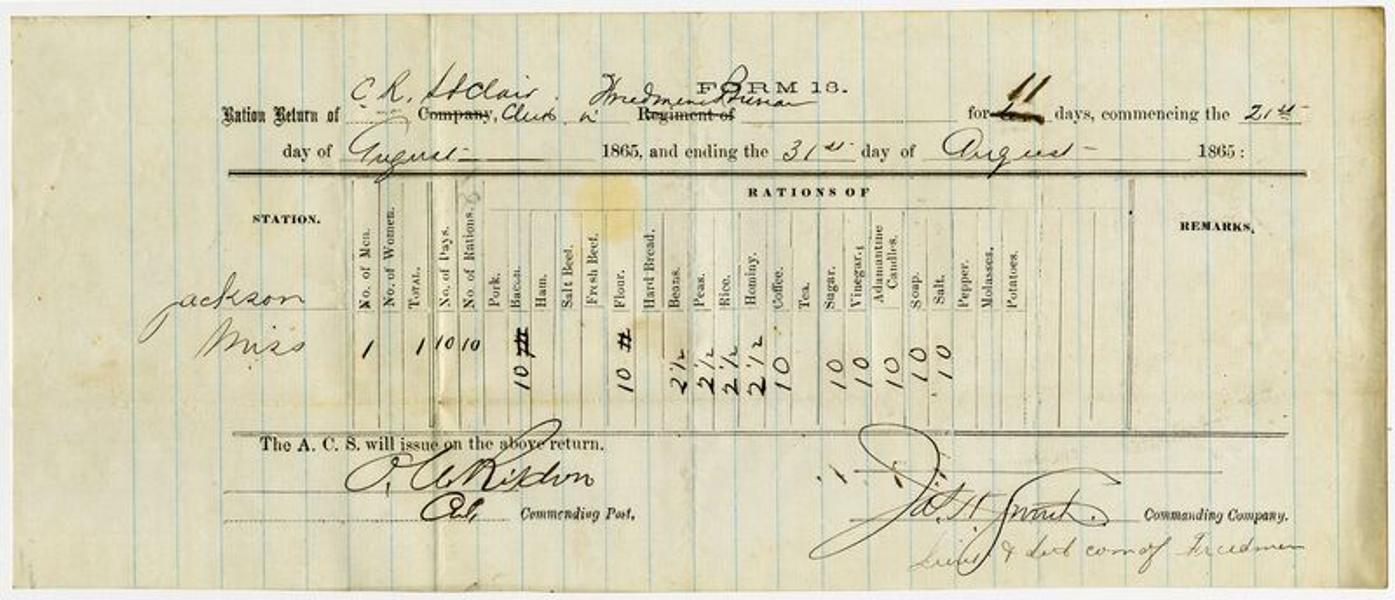 FORM 18.
Ration Return of C. R. StClair Company, Clerk in Freedmens Bureau Regiment of for 11 days, commencing the 21st
day of August 1865, and ending the 31st day of August 1865:
RATIONS OF
STATION. No. of Men. No. of Women. TOTAL. No. of Days. No. of Rations. Pork. Bacon. Ham. Salt Beef. Fresh Beef. Flour. Hard Bread. Beans. Peas. Rice. Hominy. Coffee. Tea. Sugar. Vinegar. Adamantine Candles. Soap. Salt. Pepper. Molasses. Potatoes. REMARKS.
Jackson
Miss 1 1 10 10 10 # 10 # 2½ 2½ 2½ 2½ 10 10 10 10 10 10
The A. C. S. will issue on the above return.
Commending Post,
Commanding Company.
& com of Freedmen